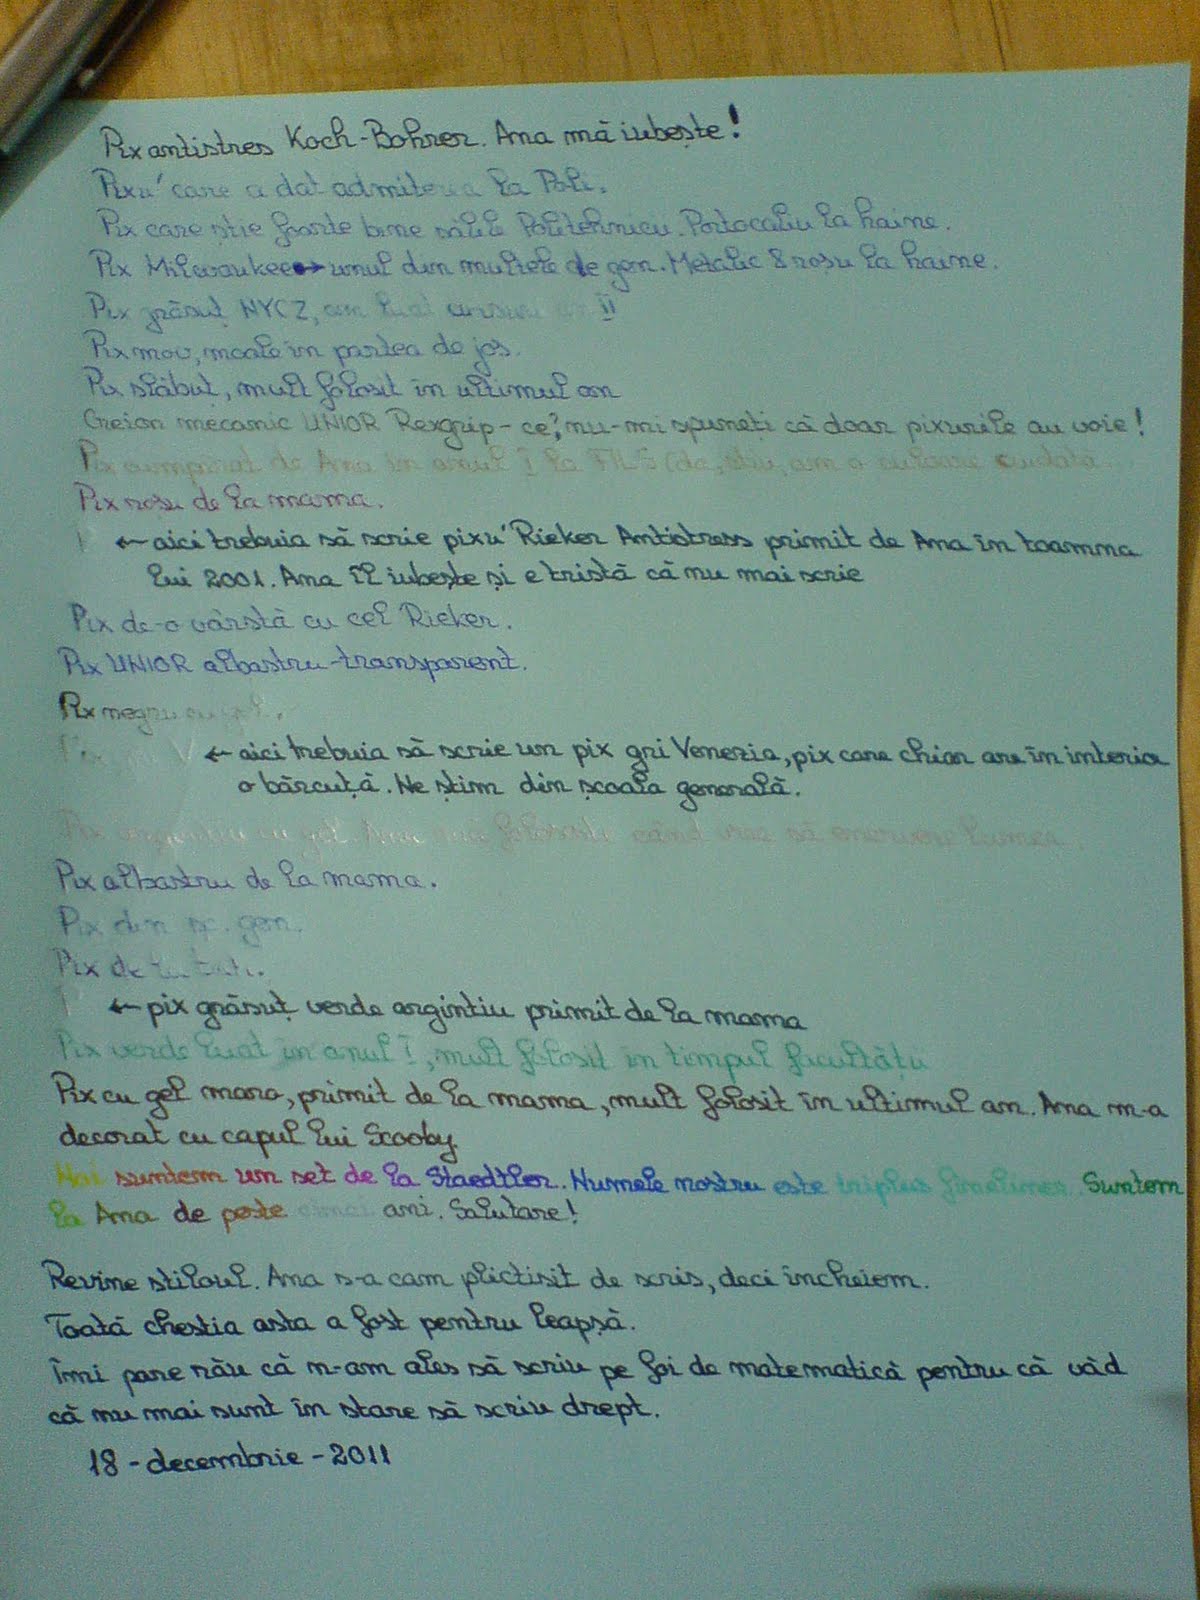 Pix antistres Koch-Bohrer. Ana mă iubește!
Pixu' care a dat admiterea la Poli.
Pix care știe foarte bine sălile Politehnicii. Portocaliu la haine.
Pix Milwaukee → unul din multele de gen. Metalic & roșu la haine.
Pix grăsuț NYCZ, am luat an II
Pix mov, moale în partea de jos.
Pix slăbuț, mult folosit în ultimul an
Creion mecanic UNIOR Rexgrip - ce?, nu-mi spuneți că doar pixurile au voie!
Pix cumpărat de Ana în anul I la FILS (da, știu, am o culoare ciudată...
Pix roșu de la mama.
← aici trebuia să scrie pixu' Rieker Antistress primit de Ana în toamna
lui 2001. Ana îl iubește și e tristă că nu mai scrie
Pix de-o vârstă cu cel Rieker.
Pix UNIOR albastru-transparent.
Pix negru cu gel.
← aici trebuia să scrie un pix gri Venezia, pix care chiar are în interior
o bărcuță. Ne știm din școala generală.
Pix argintiu cu gel. Ana mă folosește când vrea să enerveze lumea.
Pix albastru de la mama.
Pix din șc. gen.
Pix de la tati.
← pix grăsuț verde argintiu primit de la mama
Pix verde luat în anul I, mult folosit în timpul facultății
Pix cu gel maro, primit de la mama, mult folosit în ultimul an. Ana m-a
decorat cu capul lui Scooby
Noi suntem un set de la Staedtler. Numele nostru este triplus fineliner. Suntem
la Ana de peste ani. Salutare!
Revine stiloul. Ana s-a cam plictisit de scris, deci încheiem.
Toată chestia asta a fost pentru leapșă.
Îmi pare rău că n-am ales să scriu pe foi de matematică pentru că văd
că nu mai sunt în stare să scriu drept.
18 - decembrie - 2011